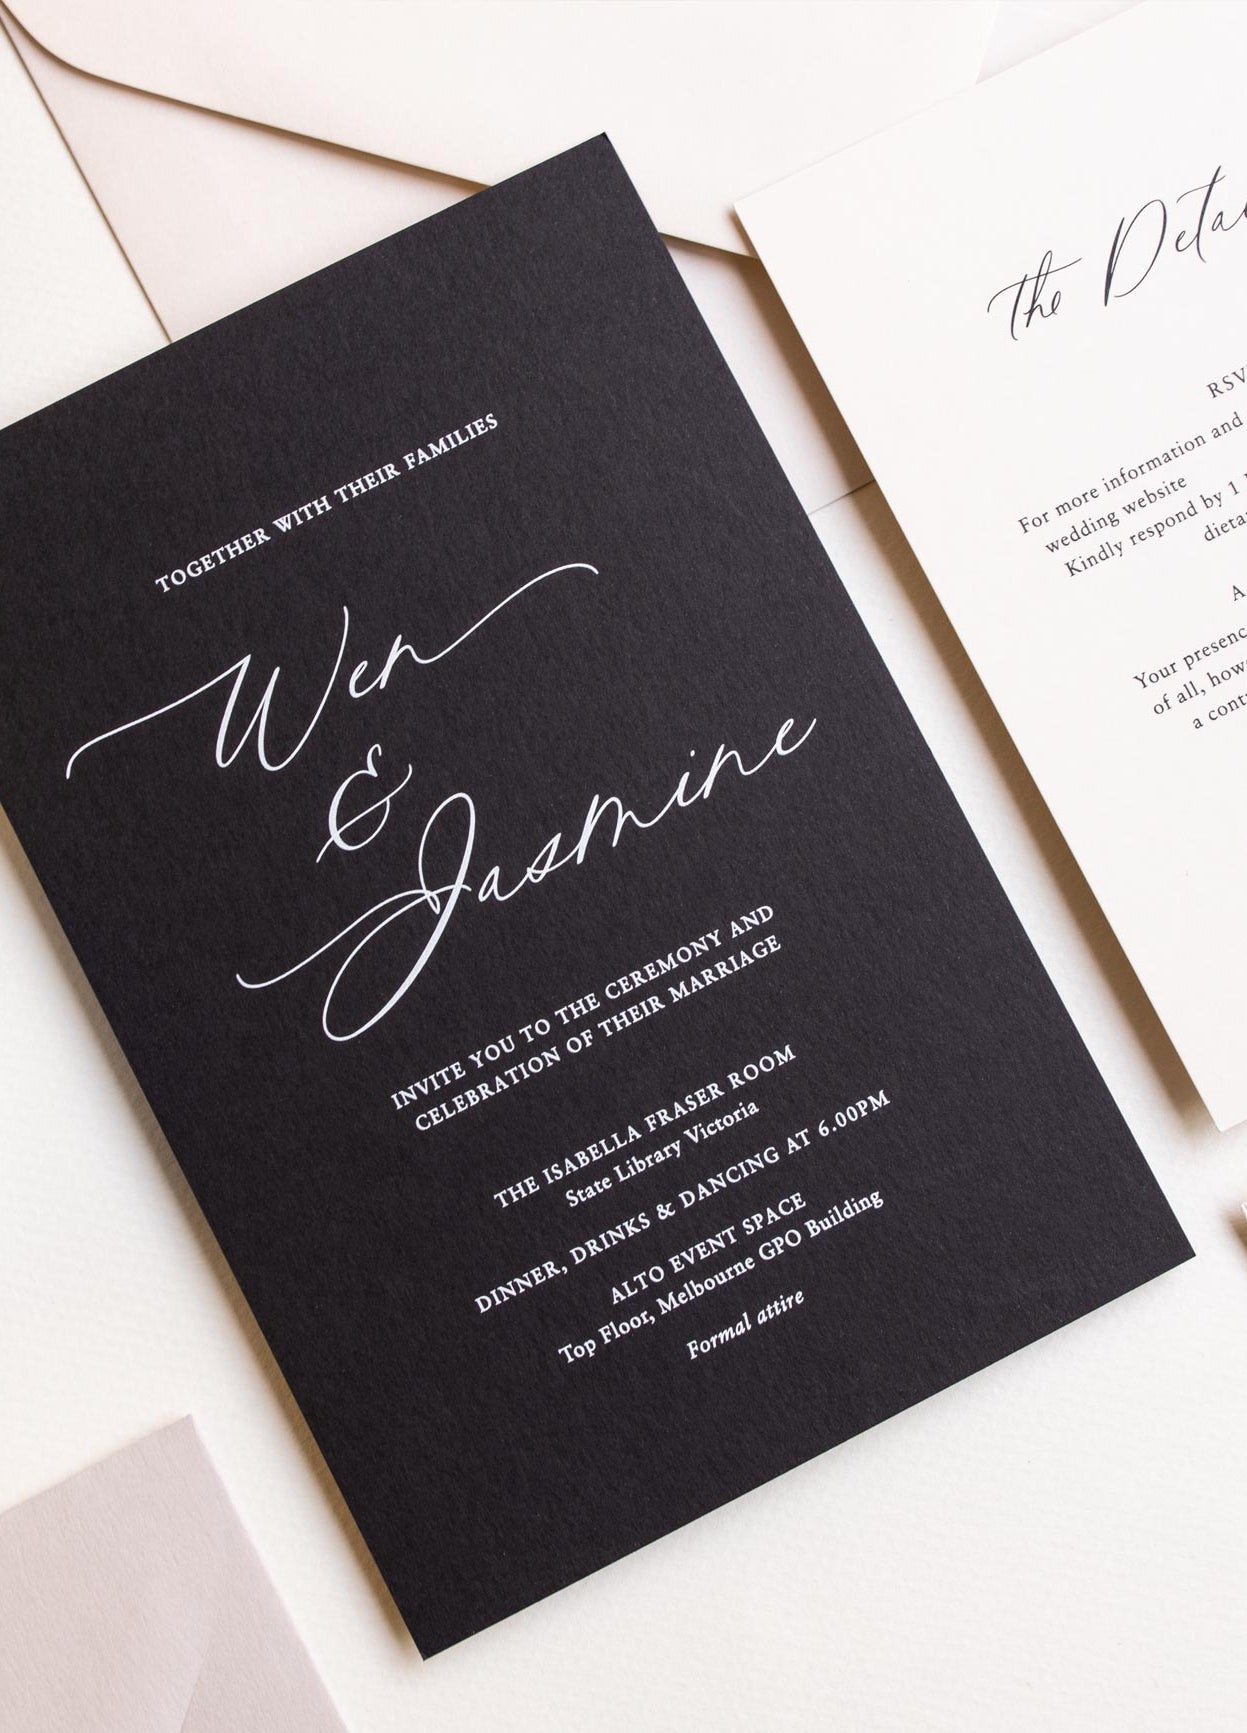 TOGETHER WITH THEIR FAMILIES
Wen
&
Jasmine
INVITE YOU TO THE CEREMONY AND
CELEBRATION OF THEIR MARRIAGE
THE ISABELLA FRASER ROOM
State Library Victoria
DINNER, DRINKS & DANCING AT 6.00PM
ALTO EVENT SPACE
Top Floor, Melbourne GPO Building
Formal attire
the
RSV
For more information and
wedding website
Kindly respond by 1
Your
of all,
a